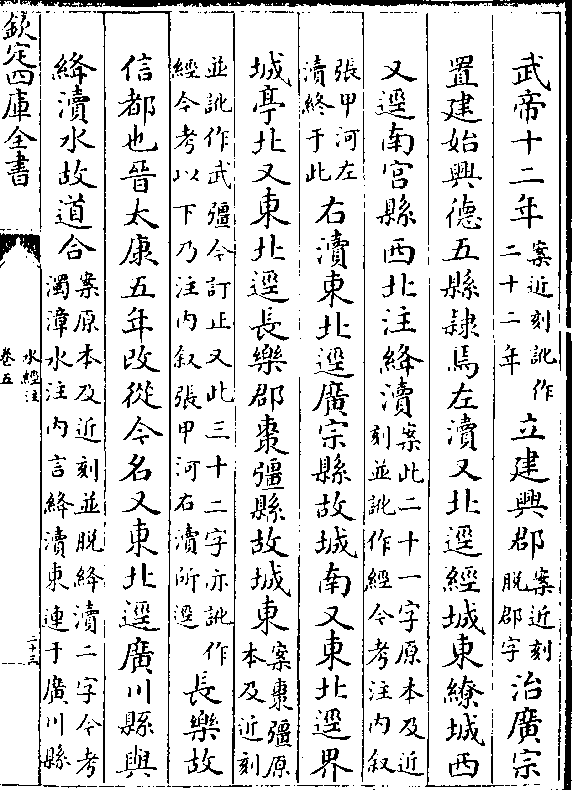 武帝十二年案近刻訛作二十二年立建興郡案近刻脫郡字治廣宗
置建始興德五縣隸焉左瀆又北逕經城東繚城西
又逕南宮縣西北注絳瀆案此二十一字原本及近刻並訛作經今考注内叙
張甲河左瀆終于此右瀆東北逕廣宗縣故城南又東北逕界
城亭北又東北逕長樂郡棗彊縣故城東案棗彊原本及近刻
並訛作武彊今訂正又此三十二字亦訛作經今考以下乃注内叙張甲河右瀆所逕長樂故
信都也晉太康五年改從今名又東北逕廣川縣與
絳瀆水故道合案原本及近刻並脫絳瀆二字今考濁漳水注内言絳瀆東連于廣川縣
欽定四庫全書
水經注
卷五
二十三